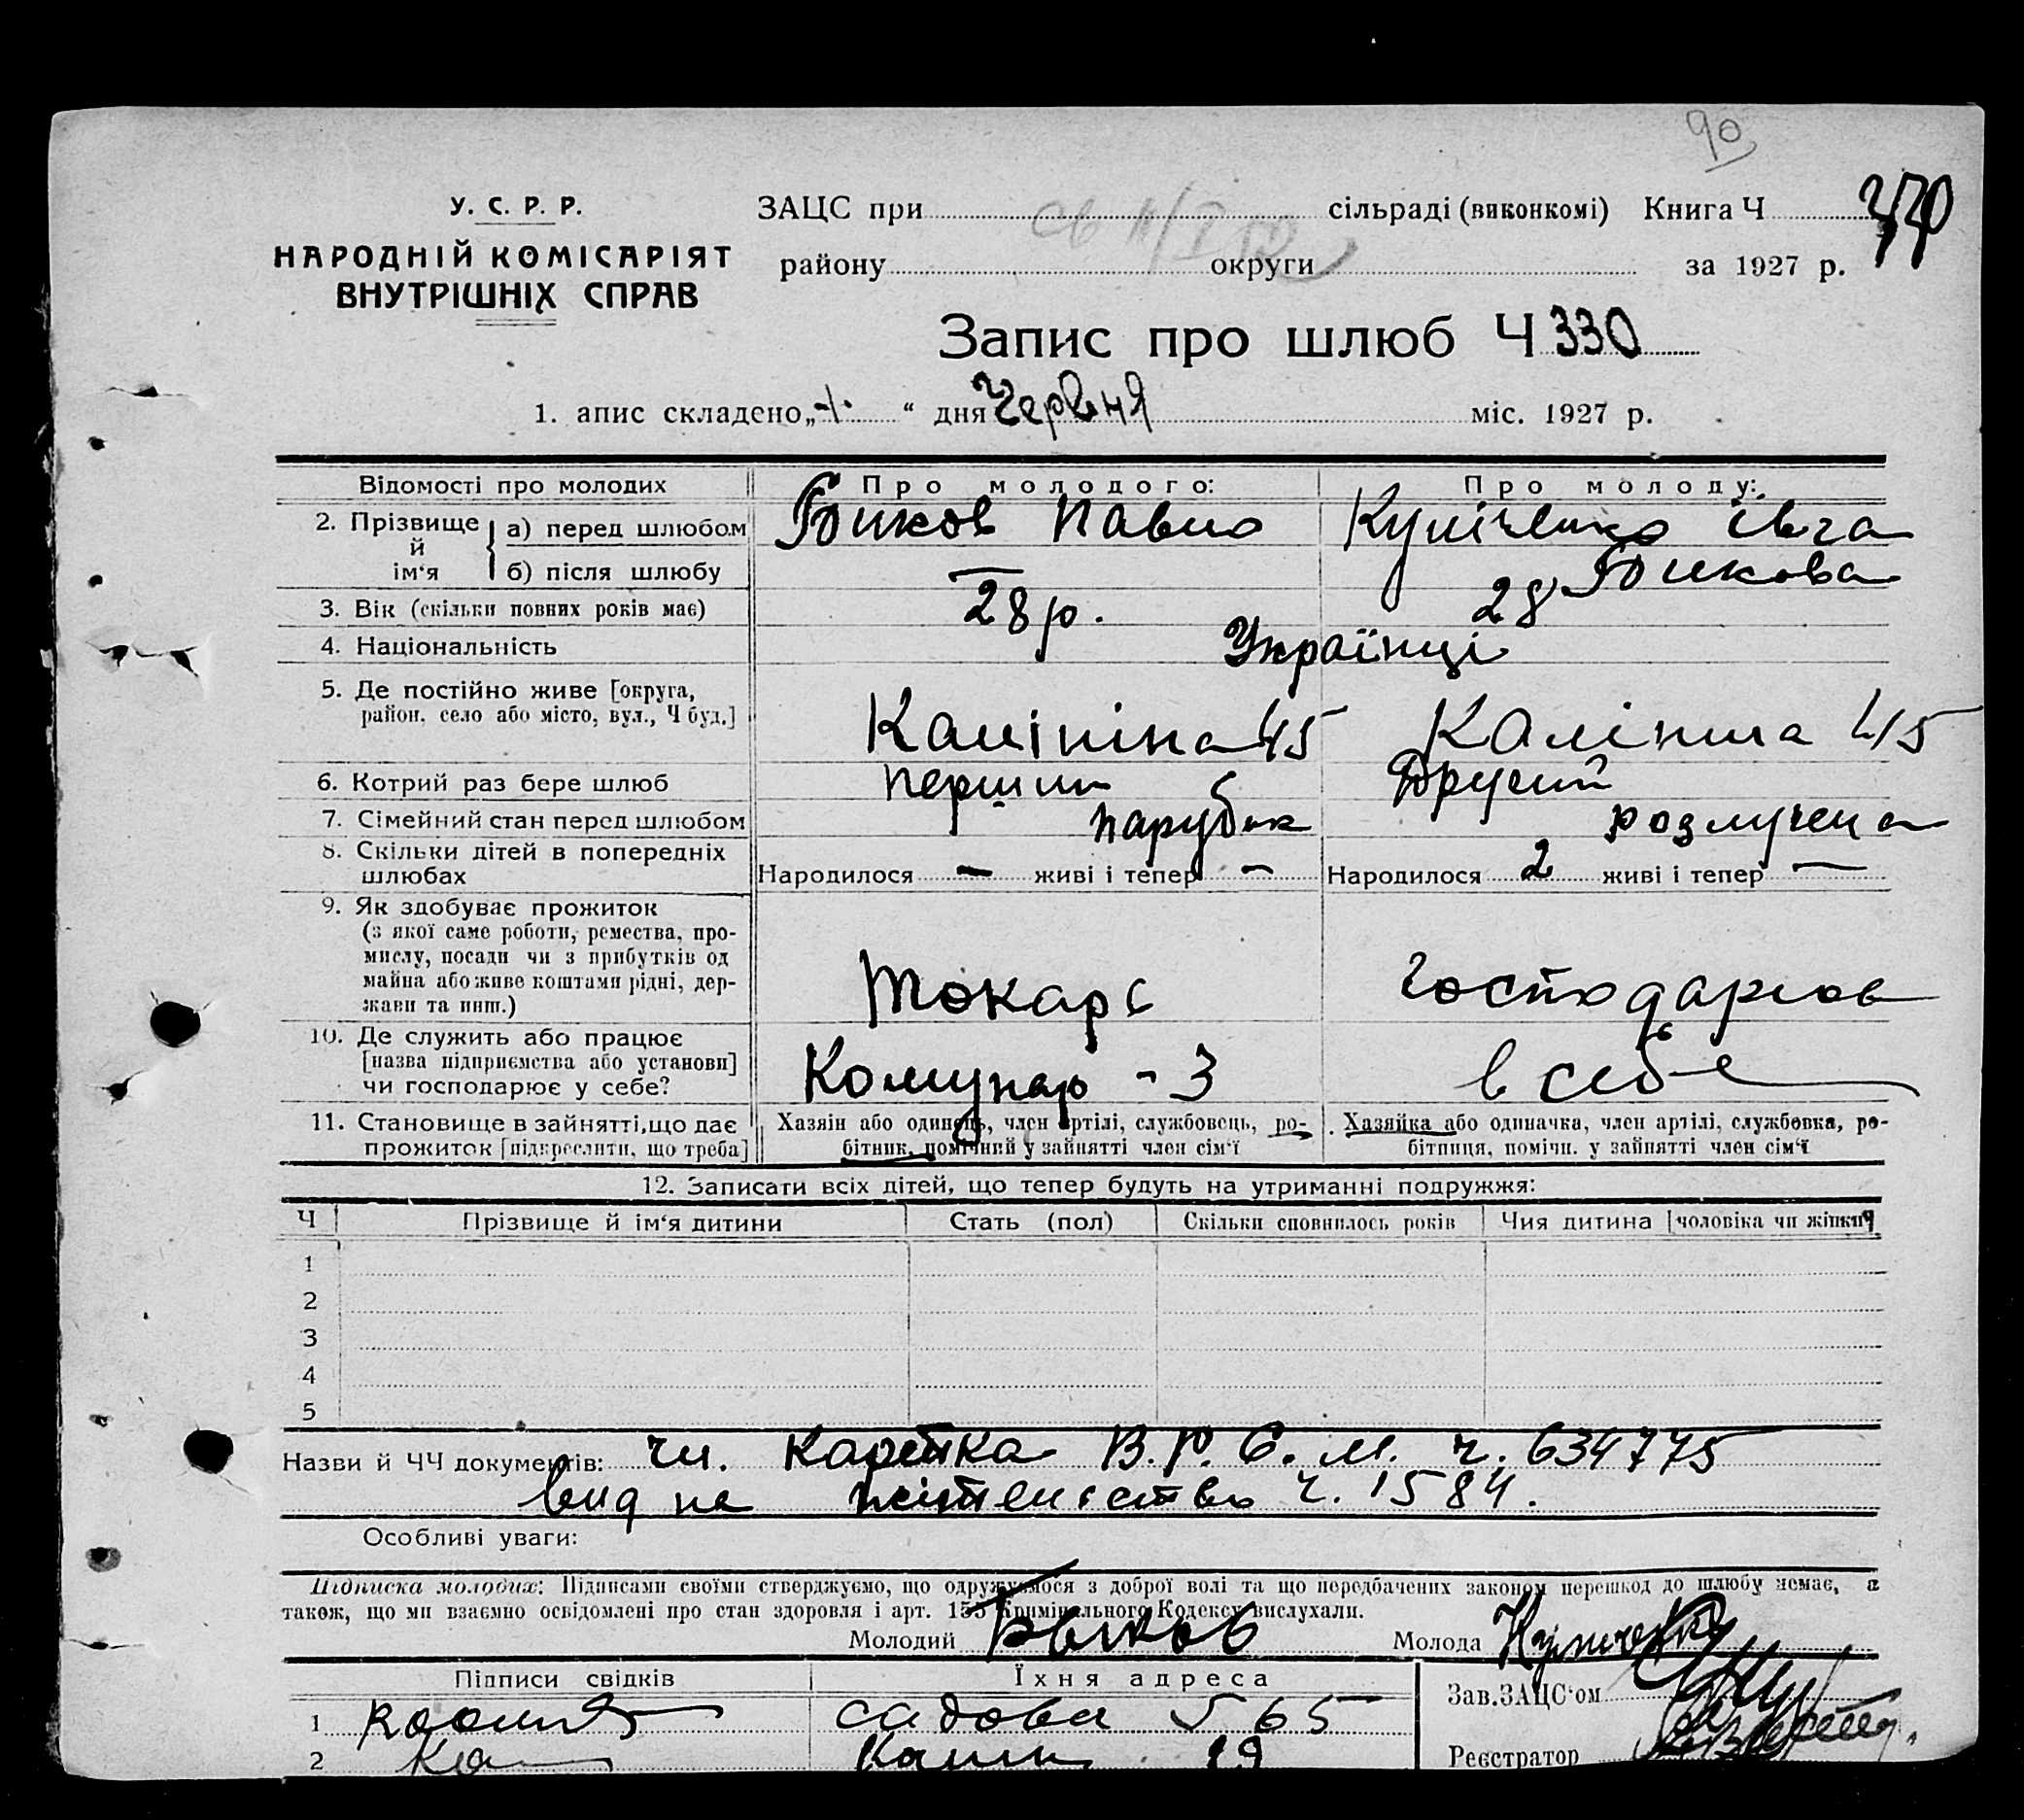 90
У. С. Р. Р.
НАРОДНІЙ КОМІСАРІЯТ
ВНУТРІШНІХ СПРАВ
ЗАЦС при сільраді (виконкомі) Книга Ч
району округи за 1927 р.
Запис про шлюб Ч 330
1. апис складено „ “ дня Червня міс. 1927 р.
Відомості про молодих Про молодого: Про молоду:
2. Прізвище й ім‘я
а) перед шлюбом Биков Павло Куліченко Євга
б) після шлюбу — Бикова
3. Вік (скільки повних років має) 28 р. 28
4. Національність Українці
5. Де постійно живе [округа,
район, село або місто, вул., Ч буд.] Калініна 45 Калініна 45
6. Котрий раз бере шлюб перший Другий
7. Сімейний стан перед шлюбом парубок розлучена
8. Скільки дітей в попередніх
шлюбах Народилося — живі і тепер — Народилося 2 живі і тепер —
9. Як здобуває прожиток
(з якої саме роботи, ремества, про-
мислу, посади чи з прибутків од
майна або живе коштами рідні, дер-
жави та инш.) Токарь господарює
10. Де служить або працює
[назва підприємства або установи]
чи господарює у себе? Комунар - 3 в себе
11. Становище в зайнятті, що дає
прожиток [підкреслити, що треба]
Хазяін або одинець, член артілі, службовець, ро-
бітник, помічний у зайнятті член сім‘ї
Хазяйка або одиначка, член артілі, службовка, ро-
бітниця, помічн. у зайнятті член сім‘ї
12. Записати всіх дітей, що тепер будуть на утриманні подружжя:
Ч Прізвище й ім‘я дитини Стать (пол) Скільки сповнилось років Чия дитина [чоловіка чи жінки]
1
2
3
4
5
Назви й ЧЧ документів: чл. карптка В.Р.С.М. ч. 634775
вид на жітельство ч. 1584.
Особливі уваги:
Підписка молодих: Підписами своїми стверджуємо, що одружуємося з доброї волі та що передбачених законом перешкод до шлюбу немає, а
також, що ми взаємно освідомлені про стан здоровля і арт. 155 Кримінального Кодексу вислухали.
Молодий Быков Молода
Підписи свідків Їхня адреса
Зав. ЗАЦС‘ом
1 садова 65
2 19
Реєстратор